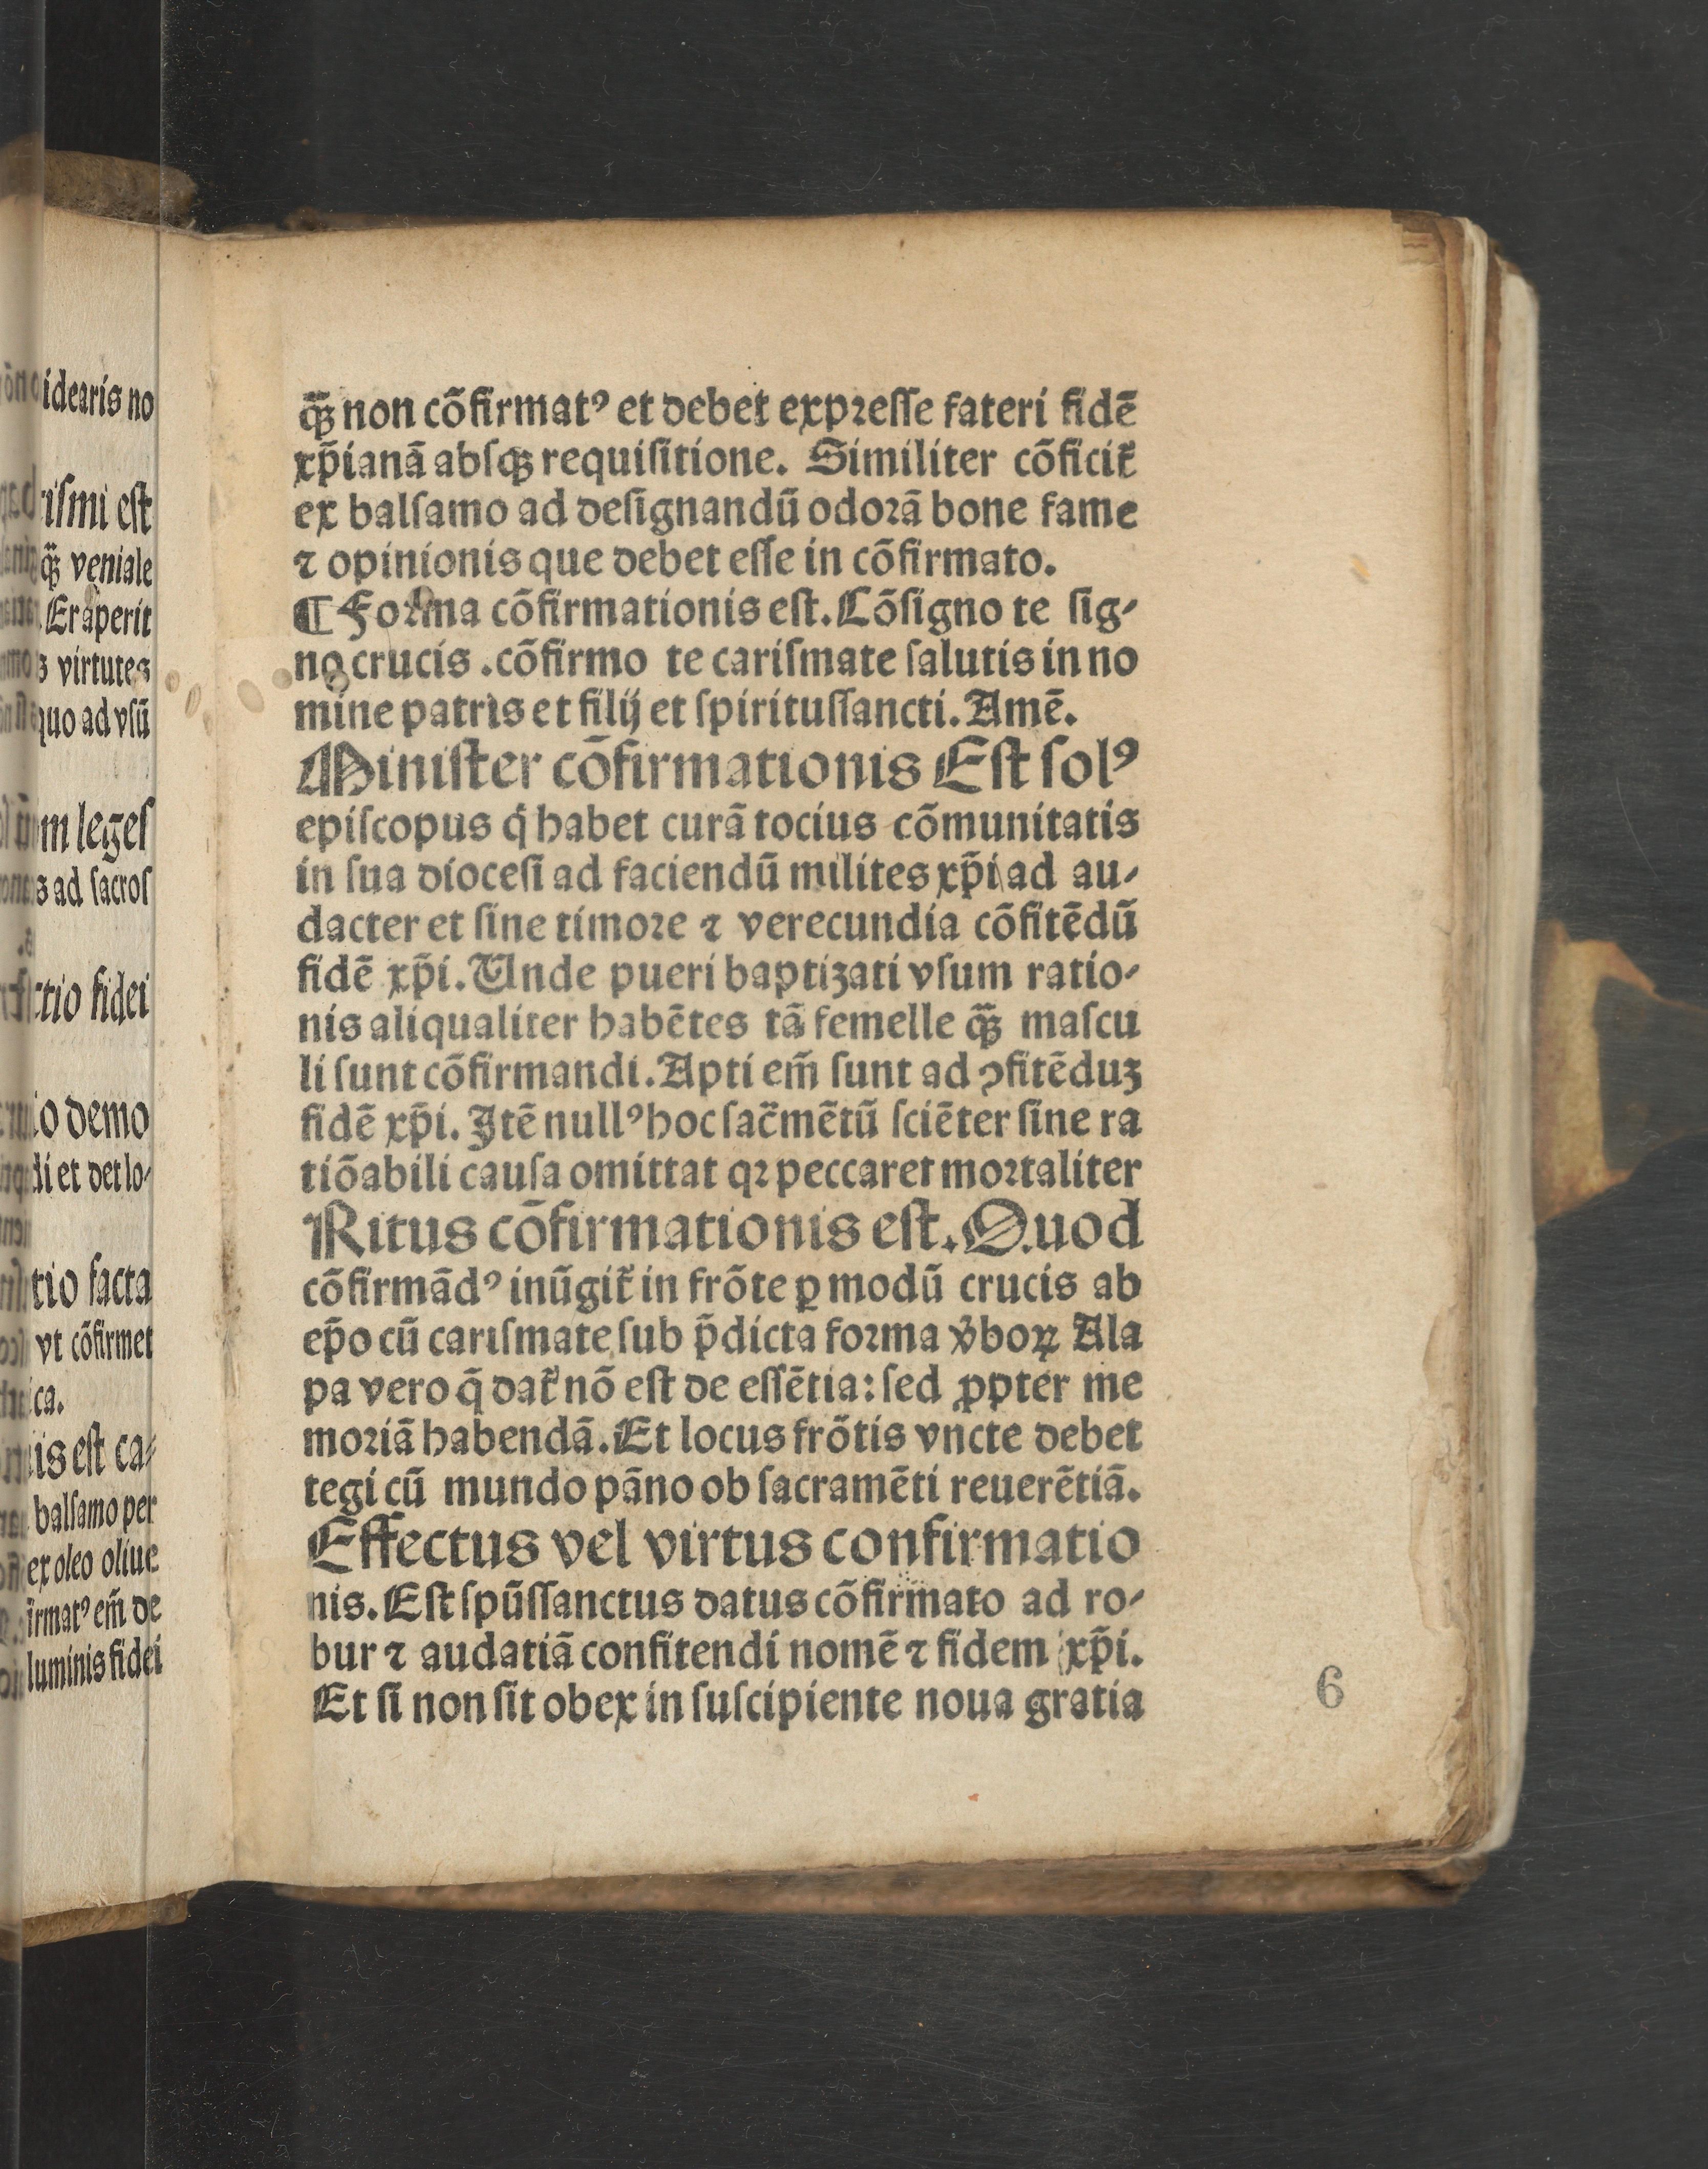 idearis no
ismi est
q̃ꝫ veniale
Er aperit
s virtutes
quo ad vsũ
m leges
s ad sacros
ctio fidei
io demo
di et det lo-
tio facta
vt cõfirmet
ca.
is est ca-
balsamo per
ex oleo oliue
irmatꝰ em̃ de
luminis fidei
q̃ꝫ non cõfirmatꝰ et debet expꝛeſſe fateri fidẽ
xp̃ianã abſqꝫ requiſitione. Similiter cõficit̃
ex balſamo ad deſignandũ odoꝛã bone fame
⁊ opinionis que debet eſſe in cõfirmato.
¶ Foꝛma cõfirmationis eſt. Cõſigno te ſig-
no crucis .cõfirmo te cariſmate ſalutis in no
mine patris et filij et ſpirituſſancti. Amẽ.
Miniſter cõfirmationis Eſt ſolꝰ
epiſcopus q̇ habet curã tocius cõmunitatis
in ſua dioceſi ad faciendũ milites xp̃i ad au-
dacter et ſine timoꝛe ⁊ verecundia cõfitẽdũ
fidẽ xp̃i. Unde pueri baptiʒati vſum ratio-
nis aliqualiter habẽtes tã femelle q̃ꝫ maſcu
li ſunt cõfirmandi. Apti em̃ ſunt ad ꝯfitẽduꝫ
fidẽ xp̃i. Itẽ nullꝰ hoc ſac̃mẽtũ ſciẽter ſine ra
tiõabili cauſa omittat qꝛ peccaret moꝛtaliter
Ritus cõfirmationis eſt. Quod
cõfirmãdꝰ inũgit̃ in frõte ꝑ modũ crucis ab
ep̃o cũ cariſmate ſub p̃dicta foꝛma ṽboꝝ Ala
pa vero q̃ dat̃ nõ eſt de eſſẽtia: ſed ꝓpter me
moꝛiã habendã. Et locus frõtis vncte debet
tegi cũ mundo pãno ob ſacramẽti reuerẽtiã.
Effectus vel virtus confirmatio
nis. Eſt ſpũſſanctus datus cõfirmato ad ro-
bur ⁊ audatiã confitendi nomẽ ⁊ fidem xp̃i.
Et ſi non ſit obex in ſuſcipiente noua gratia
6